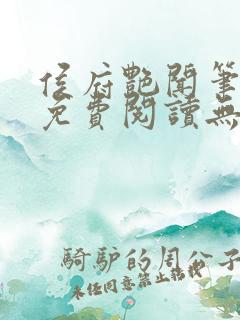 侯府艷聞筆
免費閱讀無
騎驢的周公子
未經同意禁止轉載